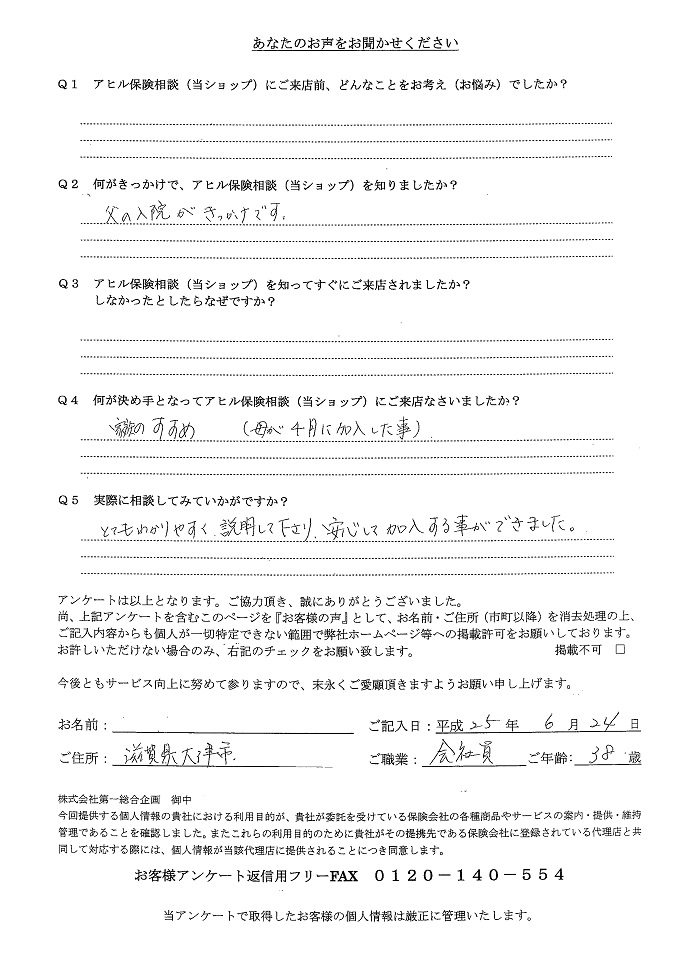 あなたのお声をお聞かせください
Q1 アヒル保険相談（当ショップ）にご来店前、どんなことをお考え（お悩み）でしたか？
Q2 何がきっかけで、アヒル保険相談（当ショップ）を知りましたか？
父の入院がきっかけです。
Q3 アヒル保険相談（当ショップ）を知ってすぐにご来店されましたか？
しなかったとしたらなぜですか？
Q4 何が決め手となってアヒル保険相談（当ショップ）にご来店なさいましたか？
家族のすすめ （母が4月に加入した事）
Q5 実際に相談してみていかがですか？
とてもわかりやすく説明して下さり、安心して加入する事ができました。
アンケートは以上となります。ご協力頂き、誠にありがとうございました。
尚、上記アンケートを含むこのページを『お客様の声』として、お名前・ご住所（市町以降）を消去処理の上、
ご記入内容からも個人が一切特定できない範囲で弊社ホームページ等への掲載許可をお願いしております。
お許しいただけない場合のみ、右記のチェックをお願い致します。 掲載不可 □
今後ともサービス向上に努めて参りますので、末永くご愛願頂きますようお願い申し上げます。
お名前： ご記入日：平成 25 年 6 月 24 日
ご住所： 滋賀県大津市 ご職業： 会社員 ご年齢： 38 歳
株式会社第一総合企画 御中
今回提供する個人情報の貴社における利用目的が、貴社が委託を受けている保険会社の各種商品やサービスの案内・提供・維持
管理であることを確認しました。またこれらの利用目的のために貴社がその提携先である保険会社に登録されている代理店と共
同して対応する際には、個人情報が当該代理店に提供されることにつき同意します。
お客様アンケート返信用フリーFAX 0120－140－554
当アンケートで取得したお客様の個人情報は厳正に管理いたします。